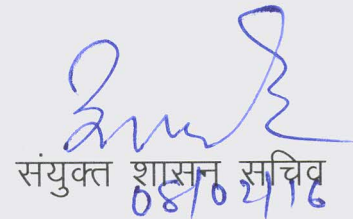 संयुक्त शासन सचिव
08/02/16